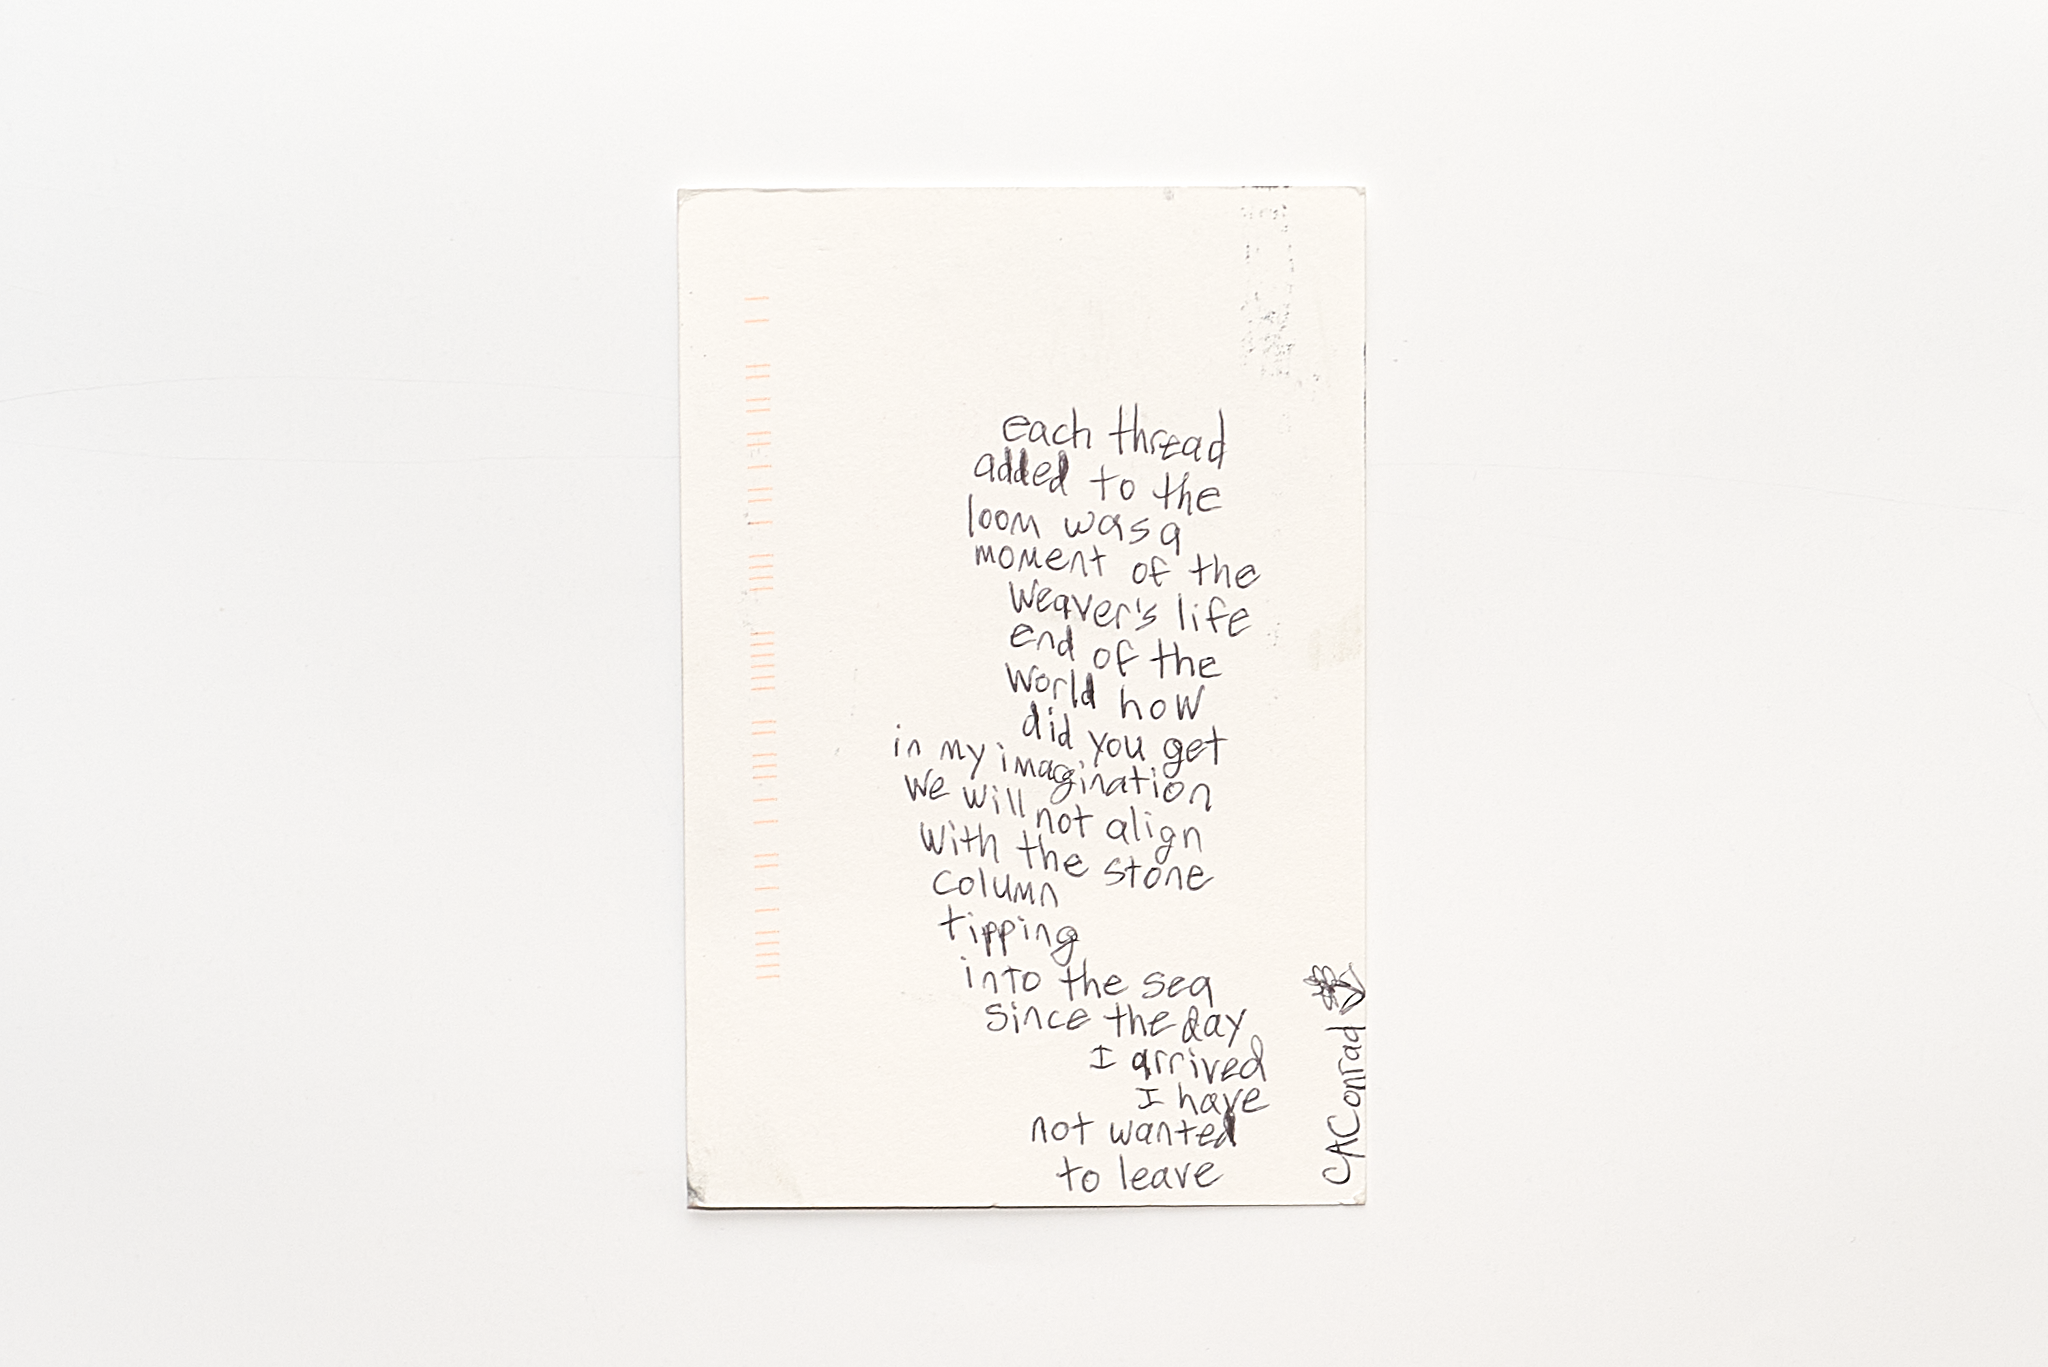 each thread
added to the
loom was a
moment of the
weaver's life
end of the
world how
did you get
in my imagination
we will not align
with the stone
column
tipping
into the sea
since the day
I arrived
I have
not wanted
to leave
CAConrad